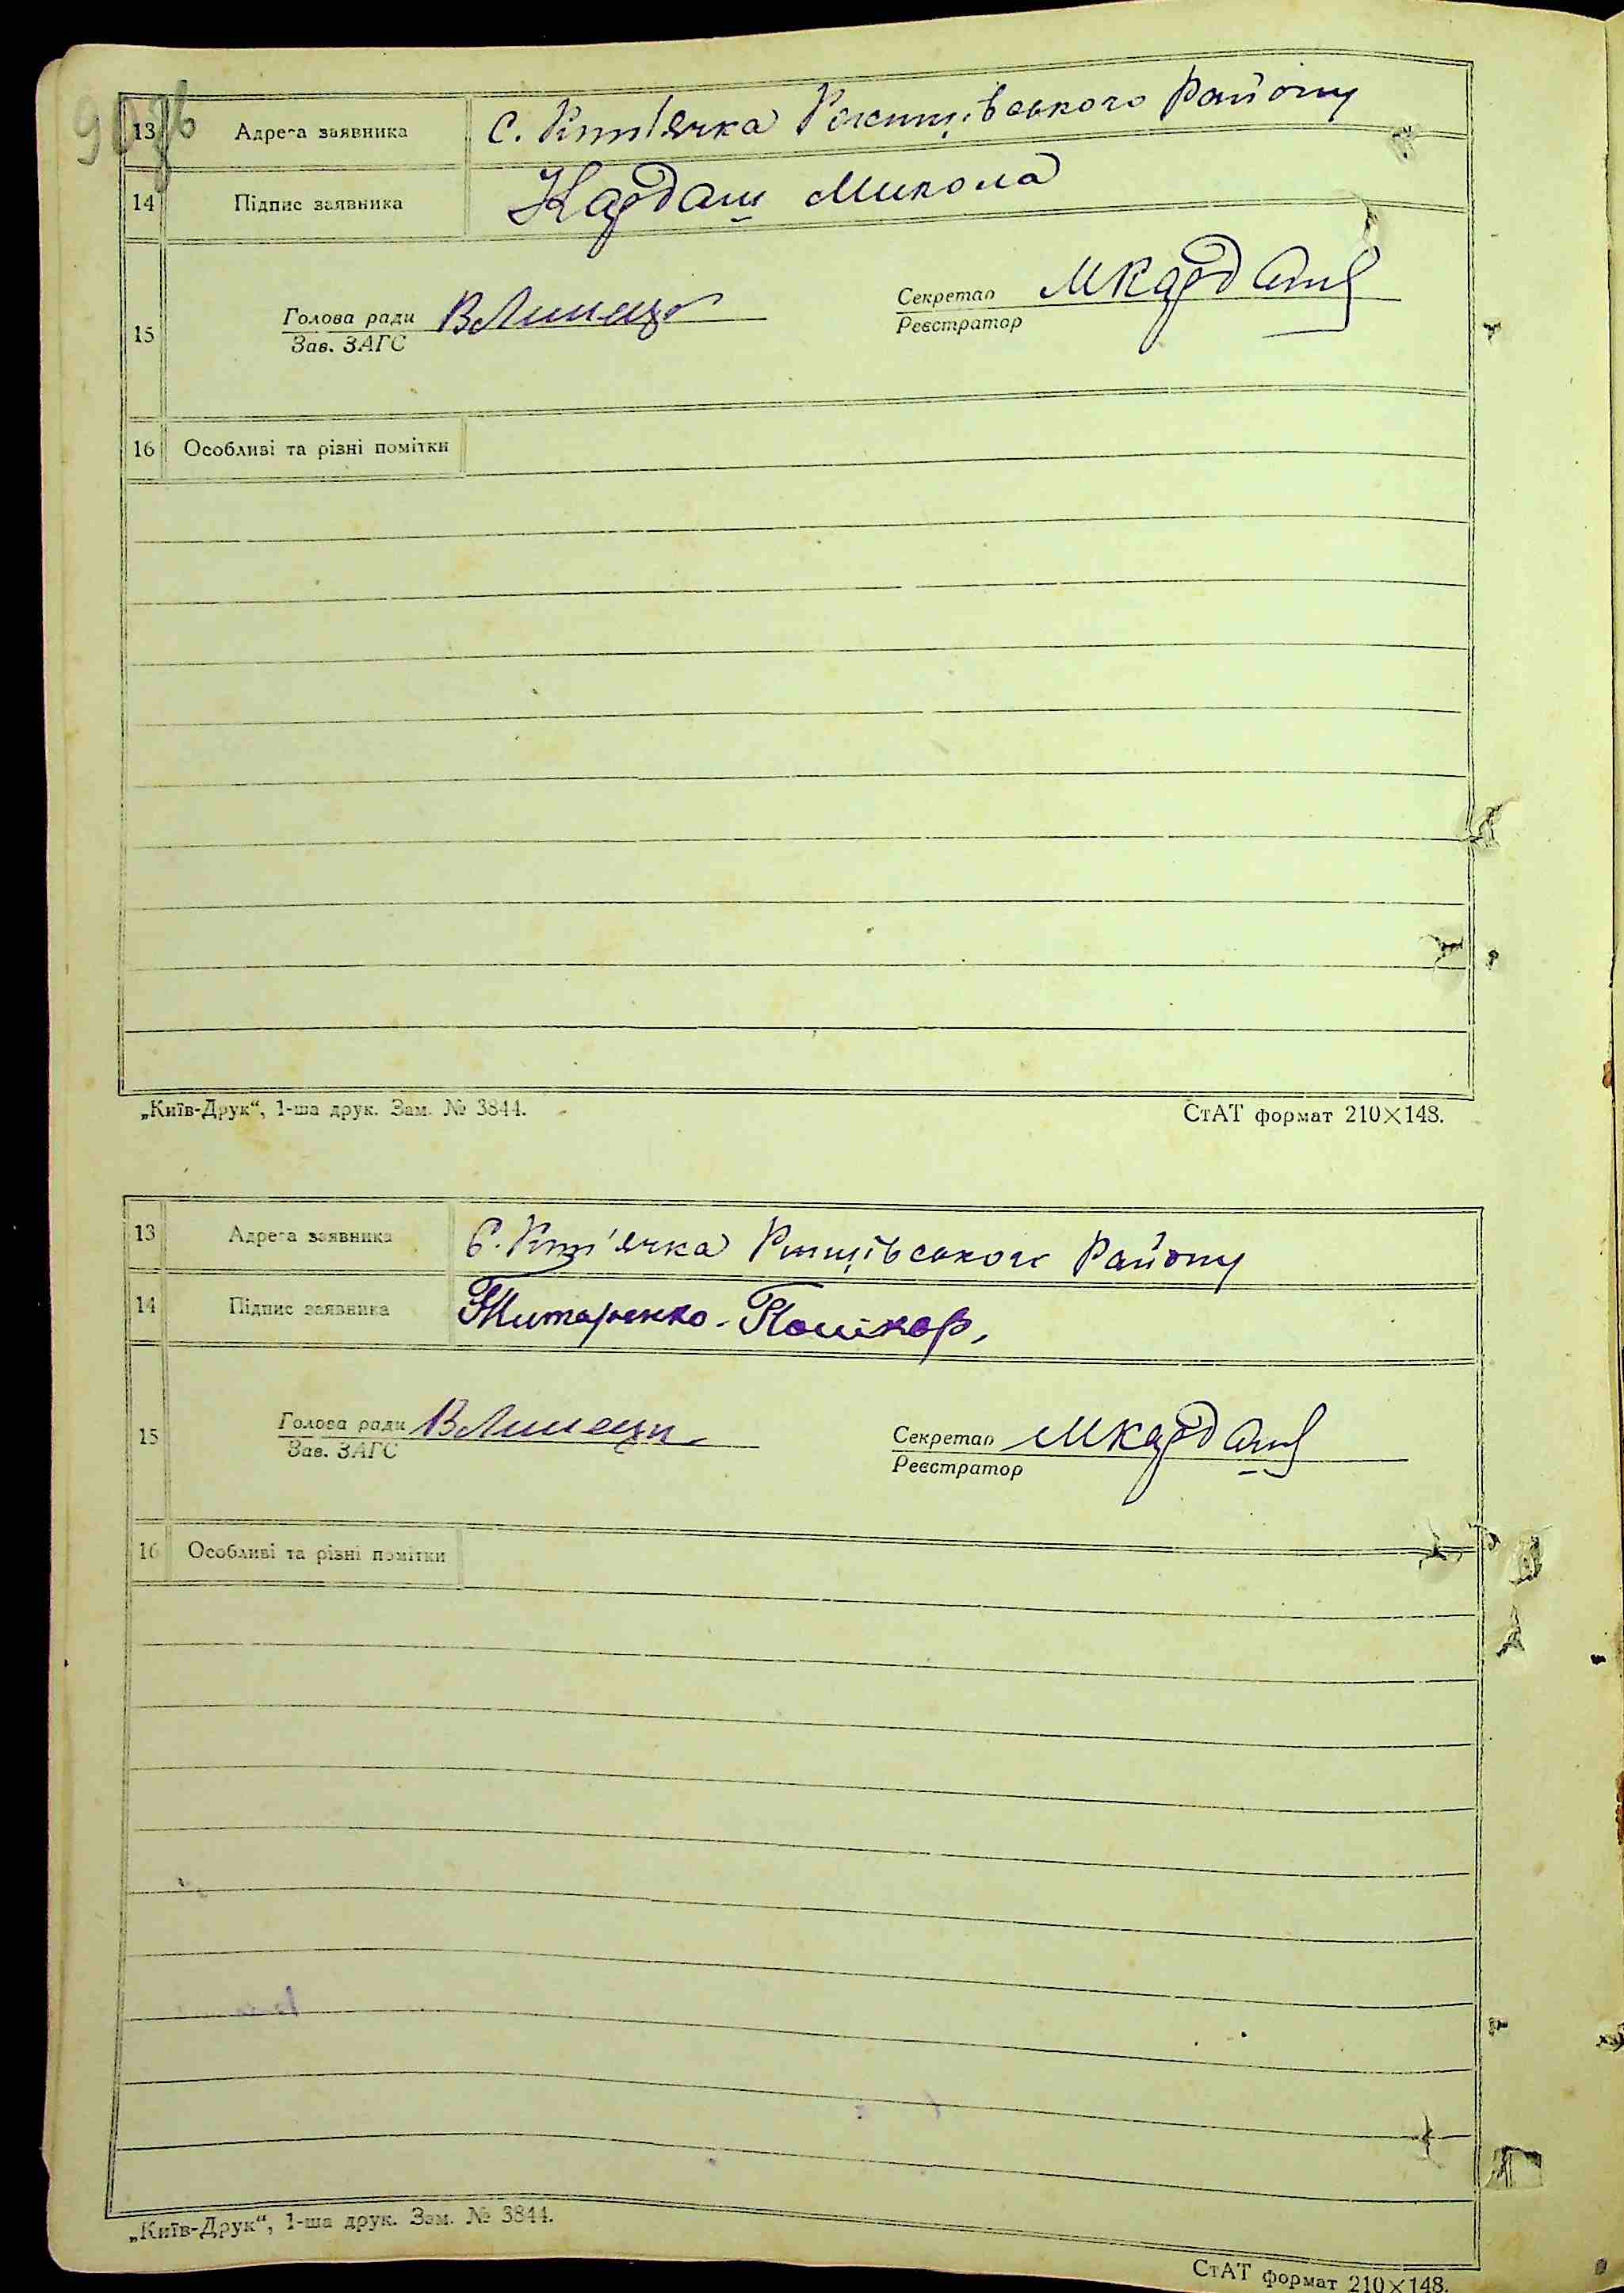 13 Адреса заявника с. Кип'ячка Району
14 Підпис заявника Кардаш Микола
15 Голова ради Секретар МКардаш
Зав. ЗАГС Реєстратор
16 Особливі та різні помітки
„Київ-Друк“, 1-ша друк. Зам. № 3844. СтАТ формат 210×148.
13 Адреса заявника С. Кип'ячка Району
14 Підпис заявника Титаренко-
15 Голова ради Секретар МКардаш
Зав. ЗАГС Реєстратор
16 Особливі та різні помітки
„Київ-Друк“, 1-ша друк. Зам. № 3844.
СтАТ формат 210×148.